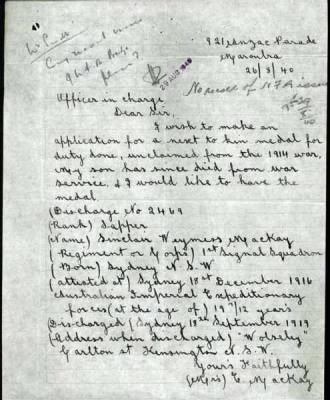 921 Anzac Parade
Maroubra
26/8/40
28 AUG 1940
No record of N.F.A issue
Officer in charge
Dear Sir,
I wish to make an
application for a next to kin medal for
duty done, unclaimed from the 1914 war,
My son has since died from war
service, & I would like to have the
medal
(Discharge No 2469
(Rank) Sapper
(Name) Sinclair Weymess Mackay
(Regiment or Corps) 1st Signal Squadron
(Born) Sydney N.S.W
(attested at) Sydney 10th December 1916
Australian Imperial Expeditionary
forces (at the age of) 19 7/12 years
(Discharged) Sydney 18th September 1919
(Address when Discharged) "Wolseley"
Carlton st Kensington N.S.W.
Yours Faithfully
(Mrs) E Mackay